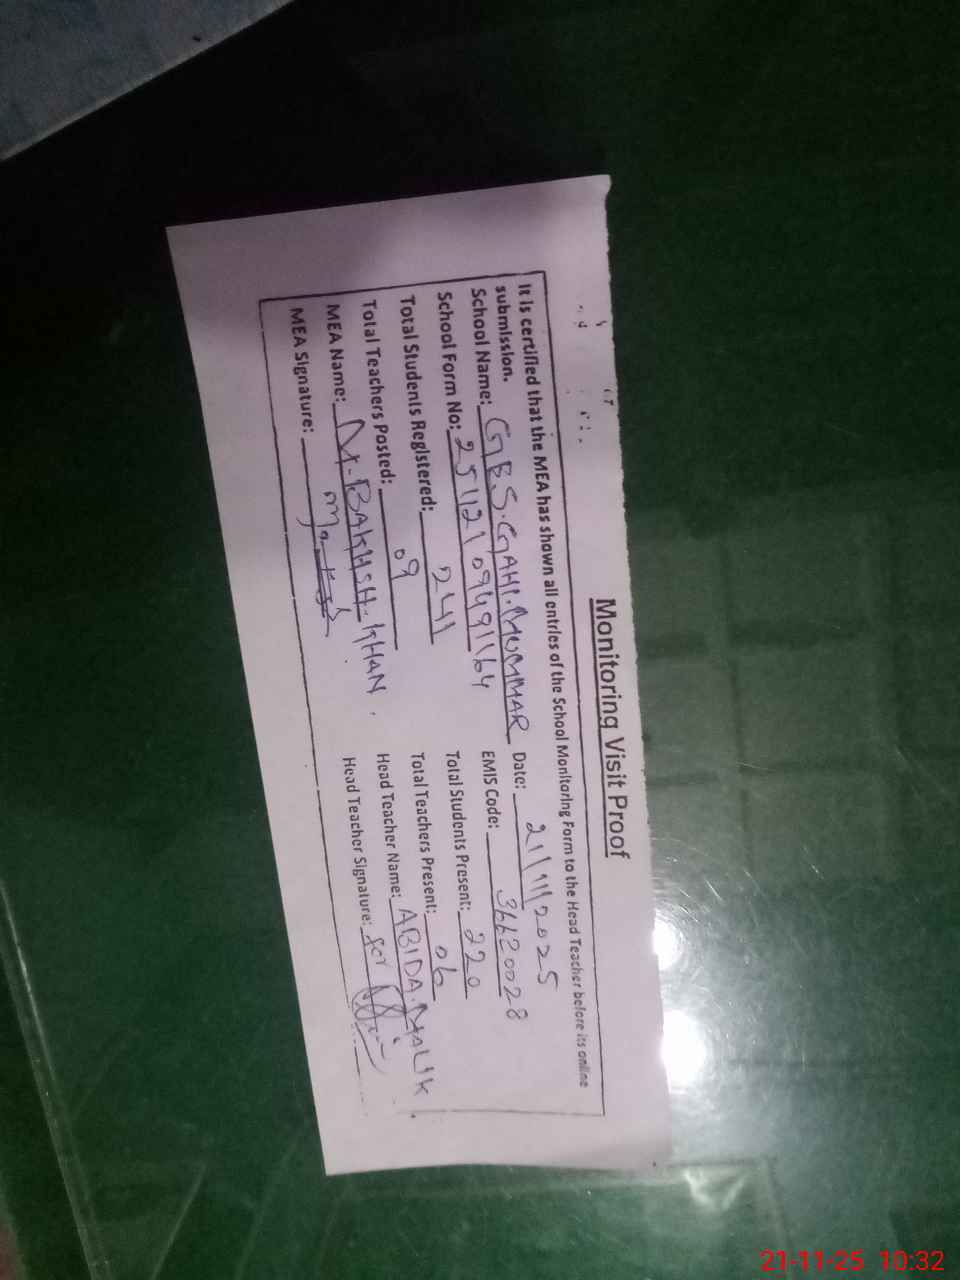 Monitoring Visit Proof
It is certified that the MEA has shown all entries of the School Monitoring Form to the Head Teacher before its online
submission.
School Name: GES.GAHI.MUMMAR Date: 21/11/2025
School Form No: 25112109491164 EMIS Code: 36620028
Total Students Registered: 241 Total Students Present: 220
Total Teachers Posted: 09 Total Teachers Present: 06
MEA Name: M.BAKHSH.KHAN. Head Teacher Name: ABIDA.MALIK
MEA Signature: Head Teacher Signature: for
21-11-25 10:32